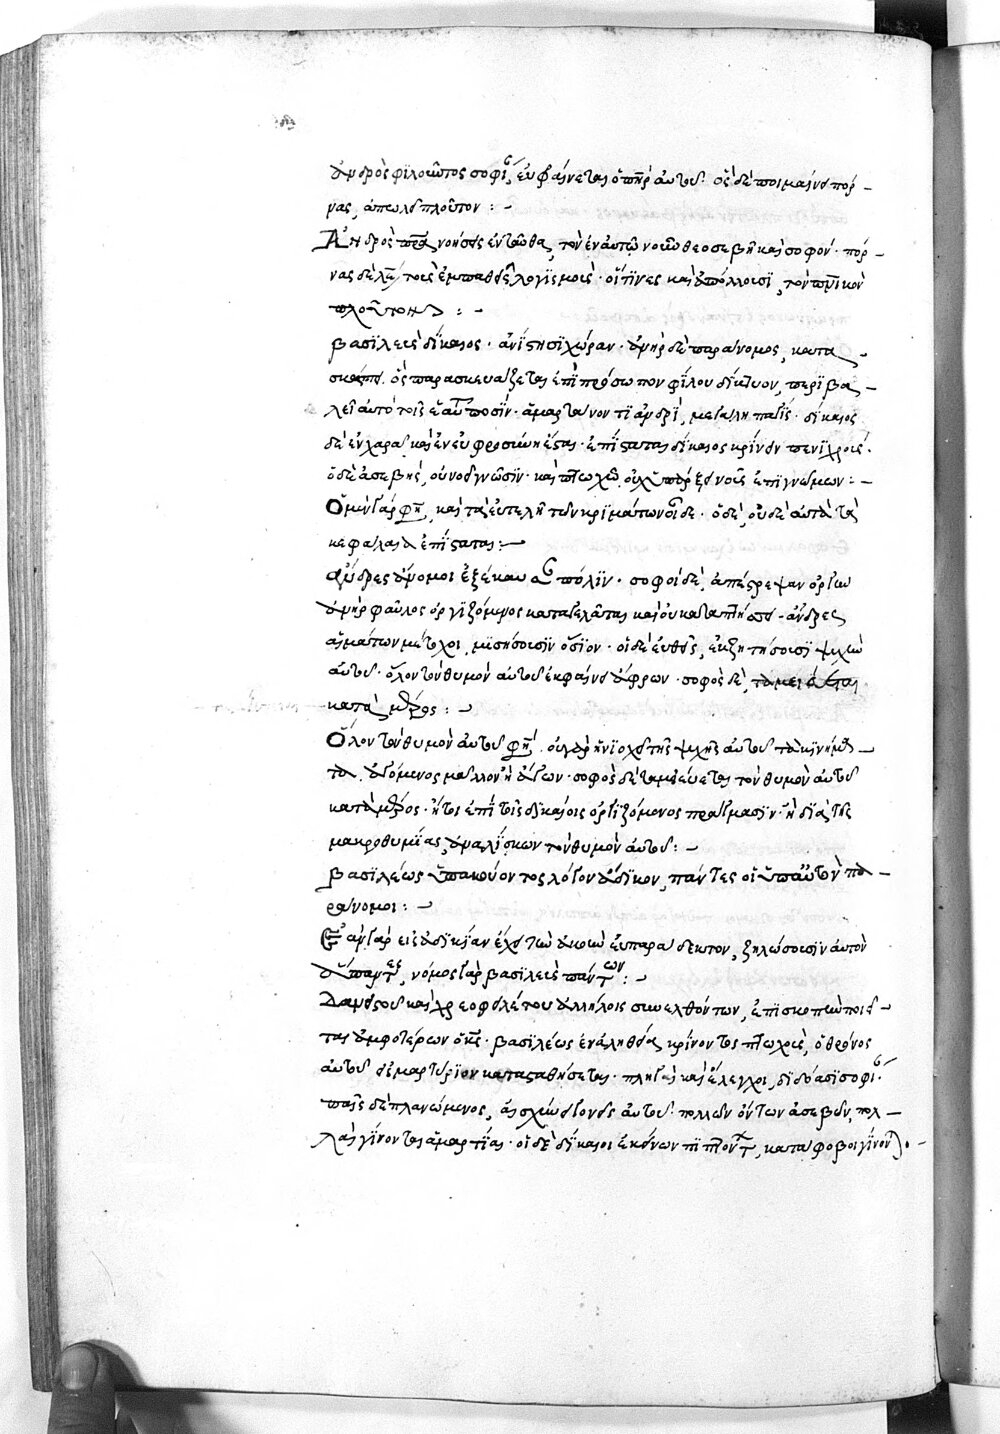 ἀνδρὸς φιλοῦντος σοφίαν, εὐφραίνεται ὁ πατὴρ αὐτοῦ· ὃς δὲ ποιμαίνει πόρ-
νας, ἀπωλεῖ πλοῦτον:-
Ἀνδρὸς πατέρα νοήσεις ἐνταῦθα, τὸν ἐν αὐτῷ νοῦν θεοσεβῆ καὶ σοφόν· πόρ-
νας δὲ λέγει τοὺς ἐμπαθεῖς λογισμούς· οἵτινες καὶ ἀπόλλουσι, τὸν πνικὸν
πλοῦτον:-
βασιλεὺς δίκαιος ἀνίστησι χώραν· ἀνὴρ δὲ παράνομος, κατα-
σκάπτει. ὃς παρασκευάζεται ἐπὶ πρόσωπον φίλου δίκτυον, περιβα-
λεῖ αὐτὸ τοῖς ἑαυτοῦ ποσίν· ἁμαρτάνοντι ἀνδρὶ, μεγάλη παγίς· δίκαιος
δὲ ἐν χαρᾷ καὶ ἐν εὐφροσύνῃ ἔσται· ἐπίσταται δίκαιος κρίνειν πενιχροῖς·
ὁ δὲ ἀσεβὴς, οὐ νοεῖ γνῶσιν· καὶ πτωχῷ οὐχ ὑπάρξει νοῦς ἐπιγνώμων:-
Ὁ μὲν γάρ φησι, καὶ τὰ εὐτελῆ τῶν κριμάτων οἶδε· ὁ δὲ, οὐδὲ αὐτὰ τὰ
κεφάλαια ἐπίσταται:-
ἄνδρες ἄνομοι ἐξέκαυσαν πόλιν· σοφοὶ δὲ, ἀπέστρεψαν ὀργὴν
ἀνὴρ φαῦλος ὀργιζόμενος καταγελᾶται καὶ οὐ καταπτήσσει· ἄνδρες
αἱμάτων μέτοχοι, μισήσουσιν ὅσιον· οἱ δὲ εὐθεῖς, ἐκζητήσουσι ψυχὴν
αὐτοῦ· ὅλον τὸν θυμὸν αὐτοῦ ἐκφαίνει ἄφρων· σοφὸς δὲ, ταμιεύεται
κατὰ μέρος:-
Ὅλον τὸν θυμὸν αὐτοῦ φησὶ, οὐ γὰρ ἡνιοχεῖ τῆς ψυχῆς αὐτοῦ τὰ κινήμα-
τα, ἀγόμενος μᾶλλον ἢ ἄγων· σοφὸς δὲ ταμιεύεται τὸν θυμὸν αὐτοῦ
κατὰ μέρος· ἤτοι ἐπὶ τοῖς δικαίοις ὀργιζόμενος πράγμασιν· ἢ διὰ τῆς
μακροθυμίας, ἀναλίσκων τὸν θυμὸν αὐτοῦ:-
βασιλέως ὑπακούοντος λόγον ἄδικον, πάντες οἱ ὑπ' αὐτὸν πα-
ράνομοι:-
Ἐὰν γὰρ εἰς ἀδικίαν ἔχει τὴν ἀκοὴν εὐπαράδεκτον, ζηλώσουσιν αὐτὸν
ἅπαντες, νόμος γὰρ βασιλεὺς πάντων:-
Δανειστοῦ καὶ χρεοφειλέτου ἀλλήλοις συνελθόντων, ἐπισκοπὴν ποιεῖ-
ται ἀμφοτέρων ὁ κύριος· βασιλέως ἐν ἀληθείᾳ κρίνοντος πτωχοὺς, ὁ θρόνος
αὐτοῦ εἰς μαρτύριον κατασταθήσεται· πληγαὶ καὶ ἔλεγχοι, διδόασι σοφίαν·
παῖς δὲ πλανώμενος, αἰσχύνει γονεῖς αὐτοῦ· πολλῶν ὄντων ἀσεβῶν, πολ-
λαὶ γίνονται ἁμαρτίαι· οἱ δὲ δίκαιοι ἐκείνων πιπτόντων, κατάφοβοι γίνονται·-